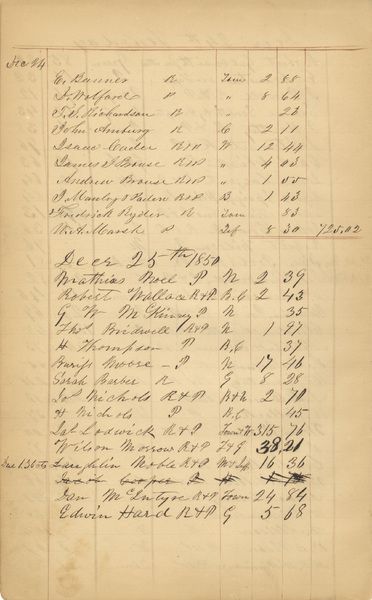 Dec 24
E. Banner R Town 2 88
J. Wolford P " 8 64
T. S. Richardson R " 23
John Amburg R C 2 11
Isaac Carter R&P W 12 44
James T. Brouse R&P " 4 03
Andrew Brouse R&P " 1 55
J. Manley R&P B 1 43
Fredrick Ryder R Town 83
W. A. Marsh P 8 30 725.02
Decr 25th 1850
Mathias Noel P N 2 39
Robert Wallace R&P B.C 2 43
G W McKinsy P N 35
Thos Bridwell R&P N 1 97
H Thompson P B.C 37
Moore - P N 17 46
Sarah Barber R G 8 28
Jos Nichols R&P B&N 2 70
H Nichols P B.C 45
Jas Lodwick R&P Town & W 315 76
Wilson Morrow R&P F&G 38 21
Noble R&P 16 36
Dan McIntyre R&P Town 24 84
Edwin Hard R&P G 5 68